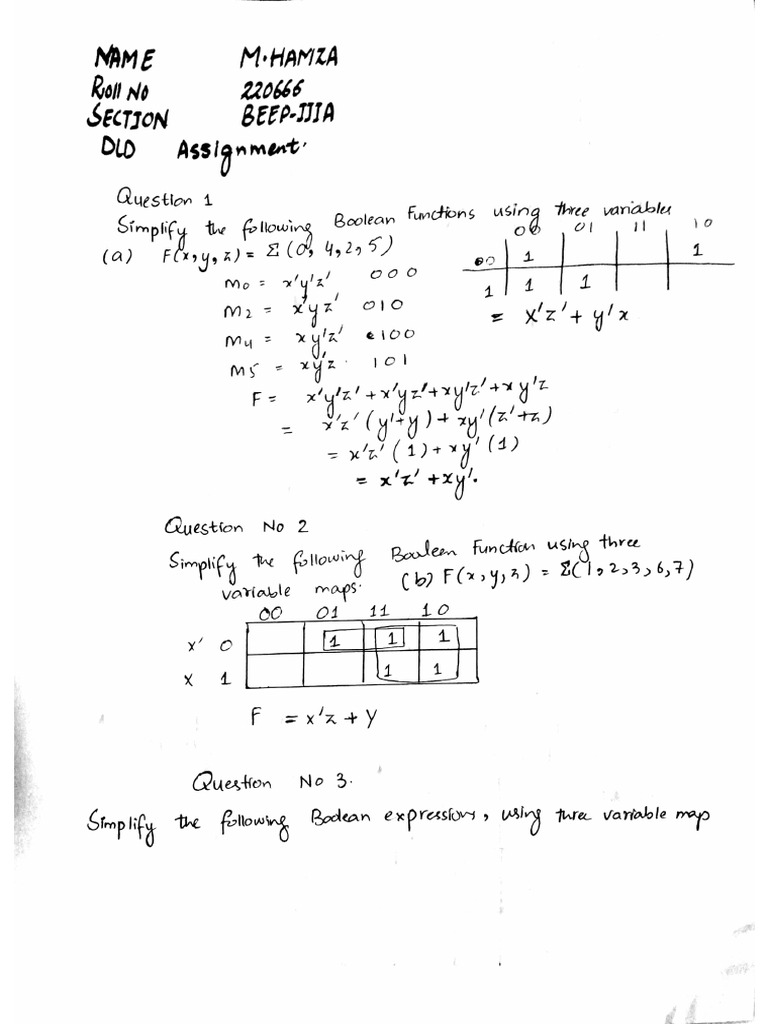 NAME M.HAMZA
Roll No 220666
SECTION BEEP-IIIA
DLD Assignment.
Question 1
Simplify the following Boolean Functions using three variables
(a) F(x,y,z) = Σ(0,4,2,5)
00 01 11 10
0 1 1
1 1 1
= x'z' + y'x
m0 = x'y'z' 000
m2 = x'yz' 010
m4 = xy'z' 100
m5 = xy'z . 101
F = x'y'z' + x'yz' + xy'z' + xy'z
= x'z'(y'+y) + xy'(z'+z)
= x'z'(1) + xy'(1)
= x'z' + xy'.
Question No 2
Simplify the following Booleen Function using three
variable maps. (b) F(x,y,z) = Σ(1,2,3,6,7)
00 01 11 10
x' 0 1 1 1
x 1 1 1
F = x'z + y
Question No 3.
Simplify the following Boolean expressions, using three variable map